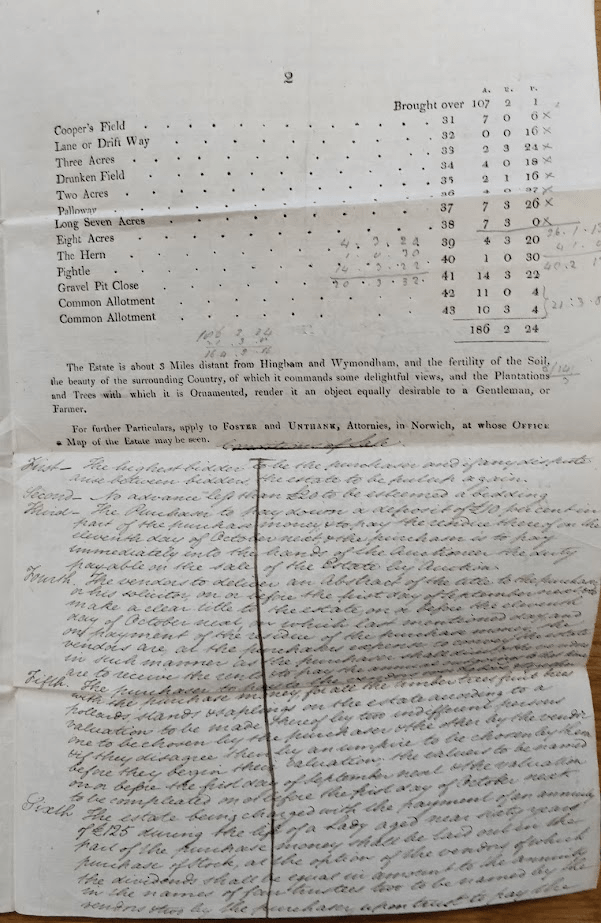 2
A. R. P.
Brought over 107 2 1
Cooper's Field 31 7 0 6 x
Lane or Drift Way 32 0 0 16 x
Three Acres 33 2 3 24 x
Drunken Field 34 4 0 18 x
Two Acres 35 2 1 16 x
Palloway 36 4 0 37 x
Long Seven Acres 37 7 3 26 x
Eight Acres 38 7 3 0 x
The Hern 39 4 3 20
Pightle 40 1 0 30
Gravel Pit Close 41 14 3 22
Common Allotment 42 11 0 4
Common Allotment 43 10 3 4
186 2 24
The Estate is about 3 Miles distant from Hingham and Wymondham, and the fertility of the Soil,
the beauty of the surrounding Country, of which it commands some delightful views, and the Plantations
and Trees with which it is Ornamented, render it an object equally desirable to a Gentleman, or
Farmer.
For further Particulars, apply to Foster and Unthank, Attornies, in Norwich, at whose Office
a Map of the Estate may be seen.
Conditions of Sale
First— The highest bidder to be the purchaser and if any dispute
arise between bidders, the estate to be put up again.
Second— No advance less than £20 to be esteemed a bidding
Third— The Purchaser to pay down a deposit of £10 per cent in
part of the purchase money & to pay the residue thereof on the
eleventh day of October next & the purchaser is to pay
immediately into the hands of the Auctioneer the duty
payable on the sale of the Estate by Auction.
Fourth. The vendors to deliver an Abstract of the title to the purchaser
or his solicitor, on or before the first day of September next & to
make a clear title to the estate, on or before the eleventh
day of October next, on which last mentioned day and
on payment of the residue of the purchase money the
vendors are at the purchasers expense to convey the estate
in such manner as the purchaser shall direct
are to receive the rents
Fifth. The purchaser to
with the purchase money, for all the timber trees fruit trees
pollards stands & saplings on the estate according to a
valuation to be made thereof by two indifferent persons
one to be chosen by the purchaser & the other by the vendors
or if they disagree then by an umpire to be chosen by them
before they begin their valuation. the valuers to be named
on or before the first day of September next & the valuation
to be compleated on or before the first day of October next
Sixth The estate being charged with the payment of an annuity
of £125 during the life of a Lady aged near sixty years
part of the purchase money shall be laid out in the
purchase of stock, at the option of the vendors of which
the dividends shall be equal in amount to the annuity
in the names of four trustees two to be named by the
vendors & two by the purchaser upon trust to pay the